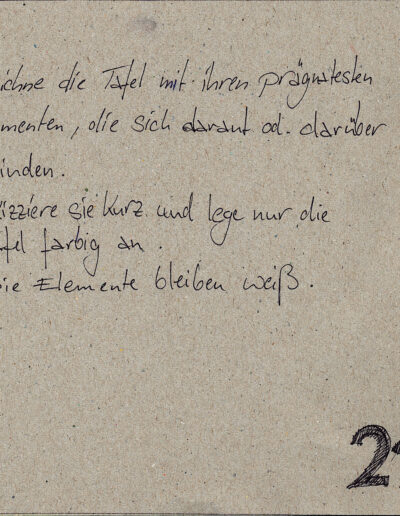 ichne die Tafel mit ihren prägnatesten
menten, die sich darauf od. darüber
inden.
izziere sie kurz und lege nur die
fel farbig an.
ie Elemente bleiben weiß.
2